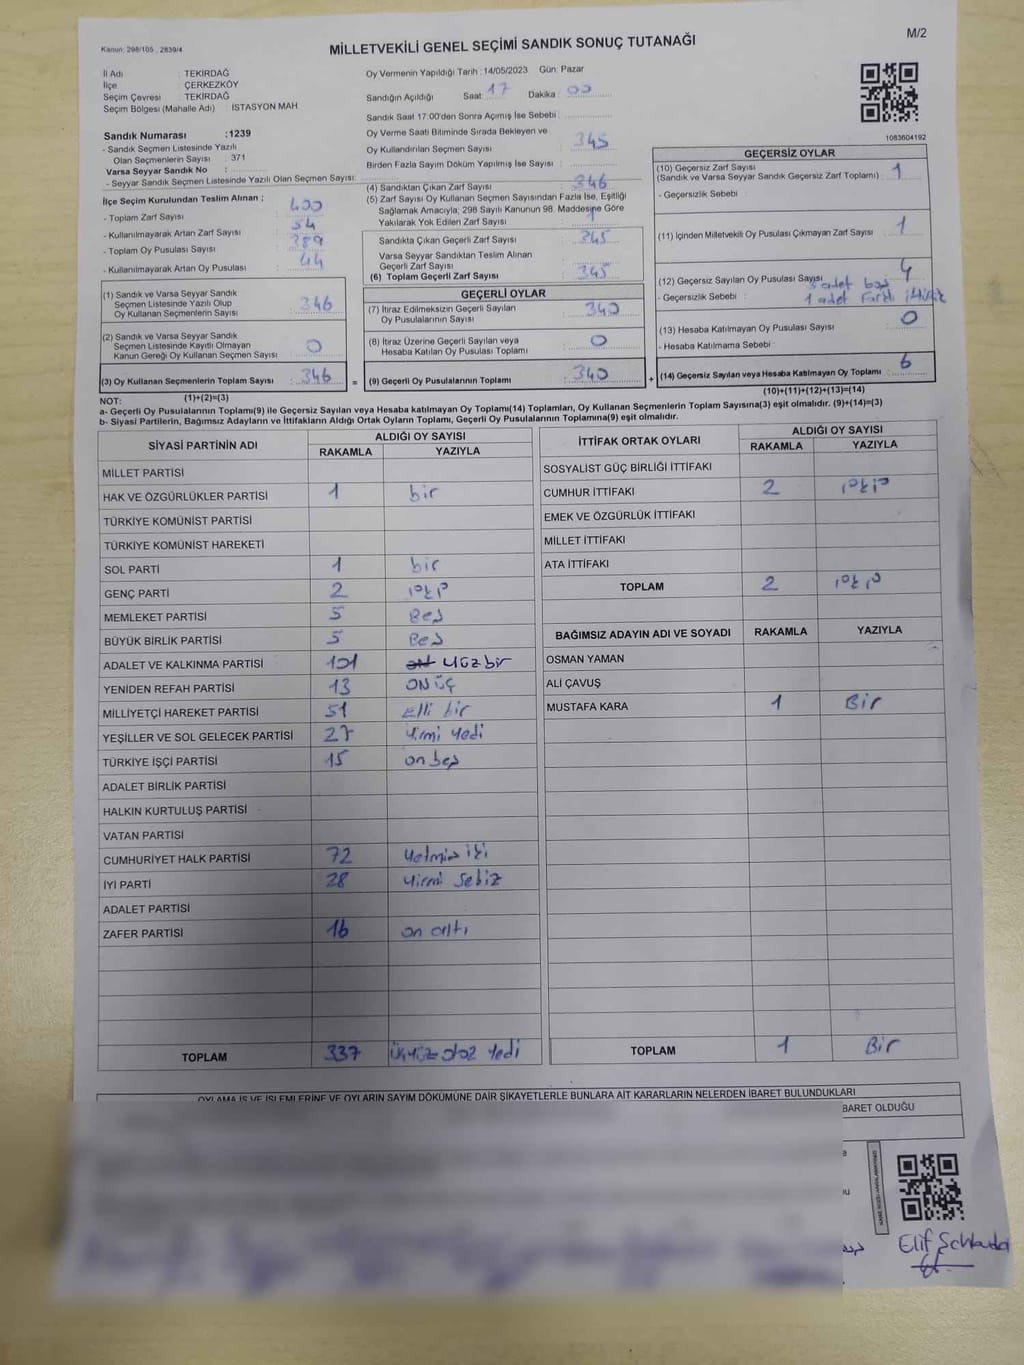 Kanun: 298/105 , 2839/4
MİLLETVEKİLİ GENEL SEÇİMİ SANDIK SONUÇ TUTANAĞI
M/2
İl Adı : TEKİRDAĞ
İlçe : ÇERKEZKÖY
Seçim Çevresi : TEKİRDAĞ
Seçim Bölgesi (Mahalle Adı) : İSTASYON MAH
Sandık Numarası :1239
- Sandık Seçmen Listesinde Yazılı
Olan Seçmenlerin Sayısı : 371
Varsa Seyyar Sandık No :
- Seyyar Sandık Seçmen Listesinde Yazılı Olan Seçmen Sayısı:
Oy Vermenin Yapıldığı Tarih :14/05/2023 Gün: Pazar
Sandığın Açıldığı Saat: 17 Dakika: 00
Sandık Saat 17:00'den Sonra Açımış İse Sebebi :
Oy Verme Saati Bitiminde Sırada Bekleyen ve
Oy Kullandırılan Seçmen Sayısı : 345
Birden Fazla Sayım Döküm Yapılmış İse Sayısı :
1083604192
İlçe Seçim Kurulundan Teslim Alınan ;
- Toplam Zarf Sayısı : 400
- Kullanılmayarak Artan Zarf Sayısı : 54
- Toplam Oy Pusulası Sayısı : 389
- Kullanılmayarak Artan Oy Pusulası : 44
(1) Sandık ve Varsa Seyyar Sandık
Seçmen Listesinde Yazılı Olup
Oy Kullanan Seçmenlerin Sayısı : 346
(2) Sandık ve Varsa Seyyar Sandık
Seçmen Listesinde Kayıtlı Olmayan
Kanun Gereği Oy Kullanan Seçmen Sayısı : 0
(3) Oy Kullanan Seçmenlerin Toplam Sayısı : 346
(1)+(2)=(3)
(4) Sandıktan Çıkan Zarf Sayısı : 346
(5) Zarf Sayısı Oy Kullanan Seçmen Sayısından Fazla İse, Eşitliği
Sağlamak Amacıyla; 298 Sayılı Kanunun 98. Maddesine Göre
Yakılarak Yok Edilen Zarf Sayısı : 1
Sandıkta Çıkan Geçerli Zarf Sayısı : 345
Varsa Seyyar Sandıktan Teslim Alınan
Geçerli Zarf Sayısı :
(6) Toplam Geçerli Zarf Sayısı : 345
GEÇERLİ OYLAR
(7) İtiraz Edilmeksizin Geçerli Sayılan
Oy Pusulalarının Sayısı : 340
(8) İtiraz Üzerine Geçerli Sayılan veya
Hesaba Katılan Oy Pusulası Toplamı : 0
= (9) Geçerli Oy Pusulalarının Toplamı : 340 +
GEÇERSİZ OYLAR
(10) Geçersiz Zarf Sayısı
(Sandık ve Varsa Seyyar Sandık Geçersiz Zarf Toplamı) : 1
- Geçersizlik Sebebi :
(11) İçinden Milletvekili Oy Pusulası Çıkmayan Zarf Sayısı : 1
(12) Geçersiz Sayılan Oy Pusulası Sayısı : 4
- Geçersizlik Sebebi : 3 adet boş
1 adet Farklı
(13) Hesaba Katılmayan Oy Pusulası Sayısı : 0
- Hesaba Katılmama Sebebi :
(14) Geçersiz Sayılan veya Hesaba Katılmayan Oy Toplamı : 6
(10)+(11)+(12)+(13)=(14)
NOT:
a- Geçerli Oy Pusulalarının Toplamı(9) ile Geçersiz Sayılan veya Hesaba katılmayan Oy Toplamı(14) Toplamları, Oy Kullanan Seçmenlerin Toplam Sayısına(3) eşit olmalıdır. (9)+(14)=(3)
b- Siyasi Partilerin, Bağımsız Adayların ve İttifakların Aldığı Ortak Oyların Toplamı, Geçerli Oy Pusulalarının Toplamına(9) eşit olmalıdır.
SİYASİ PARTİNİN ADI ALDIĞI OY SAYISI
RAKAMLA YAZIYLA
MİLLET PARTİSİ
HAK VE ÖZGÜRLÜKLER PARTİSİ 1 bir
TÜRKİYE KOMÜNİST PARTİSİ
TÜRKİYE KOMÜNİST HAREKETİ
SOL PARTİ 1 bir
GENÇ PARTİ 2 iki
MEMLEKET PARTİSİ 5 Beş
BÜYÜK BİRLİK PARTİSİ 5 Beş
ADALET VE KALKINMA PARTİSİ 101 yüz bir
YENİDEN REFAH PARTİSİ 13 on üç
MİLLİYETÇİ HAREKET PARTİSİ 51 Elli bir
YEŞİLLER VE SOL GELECEK PARTİSİ 27 Yirmi Yedi
TÜRKİYE İŞÇİ PARTİSİ 15 on beş
ADALET BİRLİK PARTİSİ
HALKIN KURTULUŞ PARTİSİ
VATAN PARTİSİ
CUMHURİYET HALK PARTİSİ 72 Yetmiş iki
İYİ PARTİ 28 Yirmi Sekiz
ADALET PARTİSİ
ZAFER PARTİSİ 16 on altı
TOPLAM 337 üçyüz otuz Yedi
İTTİFAK ORTAK OYLARI ALDIĞI OY SAYISI
RAKAMLA YAZIYLA
SOSYALİST GÜÇ BİRLİĞİ İTTİFAKI
CUMHUR İTTİFAKI 2 iki
EMEK VE ÖZGÜRLÜK İTTİFAKI
MİLLET İTTİFAKI
ATA İTTİFAKI
TOPLAM 2 iki
BAĞIMSIZ ADAYIN ADI VE SOYADI RAKAMLA YAZIYLA
OSMAN YAMAN
ALİ ÇAVUŞ
MUSTAFA KARA 1 Bir
TOPLAM 1 Bir
OYLAMA İŞ VE İŞLEMLERİNE VE OYLARIN SAYIM DÖKÜMÜNE DAİR ŞİKAYETLERLE BUNLARA AİT KARARLARIN NELERDEN İBARET BULUNDUKLARI
BARET OLDUĞU
Elif